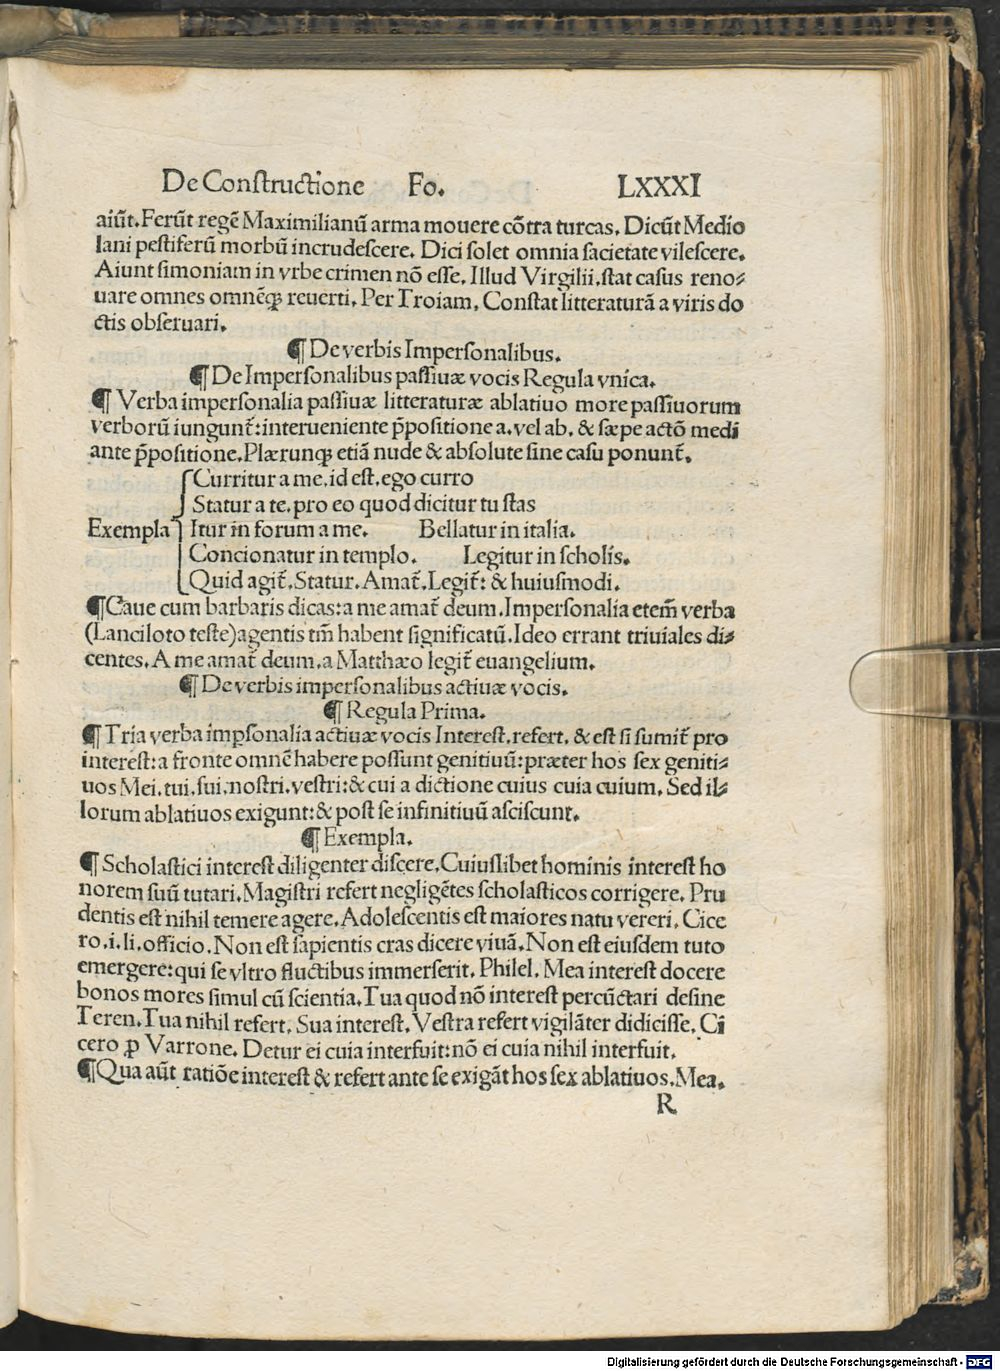 De Constructione Fo. LXXXI
aiūt. Ferūt regē Maximilianū arma mouere cōtra turcas. Dicūt Medio
lani pestiferū morbū incrudescere. Dici solet omnia sacietate vilescere.
Aiunt simoniam in vrbe crimen nō esse. Illud Virgilii. stat casus reno⸗
uare omnes omnēq; reuerti. Per Troiam. Constat litteraturā a viris do
ctis obseruari.
¶ De verbis Impersonalibus.
¶ De Impersonalibus passiuæ vocis Regula vnica.
¶ Verba impersonalia passiuæ litteraturæ ablatiuo more passiuorum
verborū iungunt̄: interueniente p̄positione a. vel ab. & sæpe actō medi
ante p̄positione. Plærunq; etiā nude & absolute sine casu ponunt̄.
Curritur a me. id est. ego curro
Statur a te. pro eo quod dicitur tu stas
Exempla Itur in forum a me. Bellatur in italia.
Concionatur in templo. Legitur in scholis.
Quid agit̄. Statur. Amat̄. Legit̄: & huiusmodi.
¶ Caue cum barbaris dicas: a me amat̄ deum. Impersonalia etem̄ verba
(Lanciloto teste) agentis tm̄ habent significatū. Ideo errant triuiales di⸗
centes. A me amat̄ deum. a Matthæo legit̄ euangelium.
¶ De verbis impersonalibus actiuæ vocis.
¶ Regula Prima.
¶ Tria verba imꝑsonalia actiuæ vocis Interest. refert. & est si sumit̄ pro
interest: a fronte omnē habere possunt genitiuū: præter hos sex geniti⸗
uos Mei. tui. sui. nostri. vestri: & cui a dictione cuius cuia cuium. Sed il⸗
lorum ablatiuos exigunt: & post se infinitiuū asciscunt.
¶ Exempla.
¶ Scholastici interest diligenter discere. Cuiuslibet hominis interest ho
norem suū tutari. Magistri refert negligētes scholasticos corrigere. Pru
dentis est nihil temere agere. Adolescentis est maiores natu vereri. Cice
ro. i. li. officio. Non est sapientis cras dicere viuā. Non est eiusdem tuto
emergere: qui se vltro fluctibus immerserit. Philel. Mea interest docere
bonos mores simul cū scientia. Tua quod nō interest percūctari desine
Teren. Tua nihil refert. Sua interest. Vestra refert vigilāter didicisse. Ci
cero ꝓ Varrone. Detur ei cuia interfuit: nō ei cuia nihil interfuit.
¶ Qua aūt ratiōe interest & refert ante se exigāt hos sex ablatiuos. Mea.
R
Digitalisierung gefördert durch die Deutsche Forschungsgemeinschaft - DFG